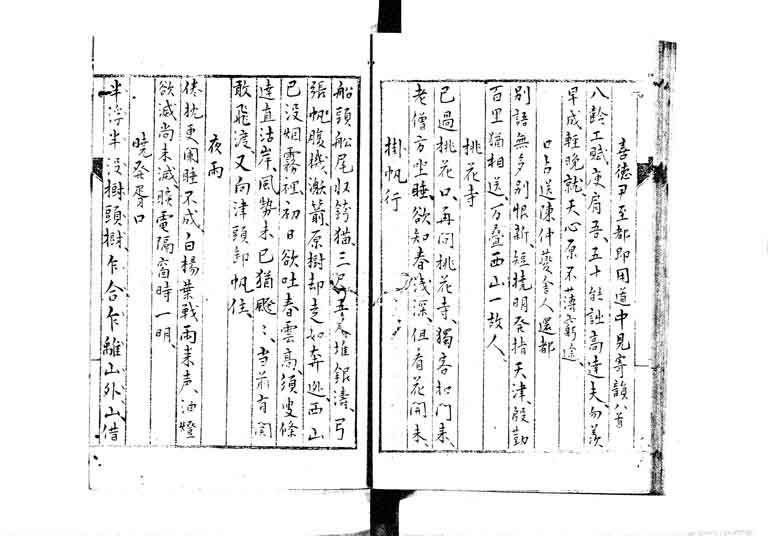 喜德尹至都即用道中見寄韻八首
八齡工賦庾肩吾、五十能詩高達夫、勿羨
早成輕晚就、天心原不薄窮途、
口占送陳仲夔舍人還都
別語無多別恨新、短橈明發指天津、殷勤
百里猶相送、万疊西山一故人、
桃花寺
已過桃花口、再問桃花寺、獨客扣門來、
老僧方坐睡、欲知春淺深、但看花開未、
掛帆行
船頭船尾收鐵猫、三尺堆銀濤、弓
張帆腹機激箭、原樹却走如奔逃、西山
已沒烟霧裡、初日欲吐春雲高、須臾條
達直沽岸、風勢未已猶飈、當前有関
敢飛渡、又向津頭卸帆住、
夜雨
倦枕更闌睡不成、白楊葉戰雨來声、油燈
欲滅尚未滅、電隔窗時一明、
曉發胥口
半浮半沒樹頭樹、乍合乍離山外山、借